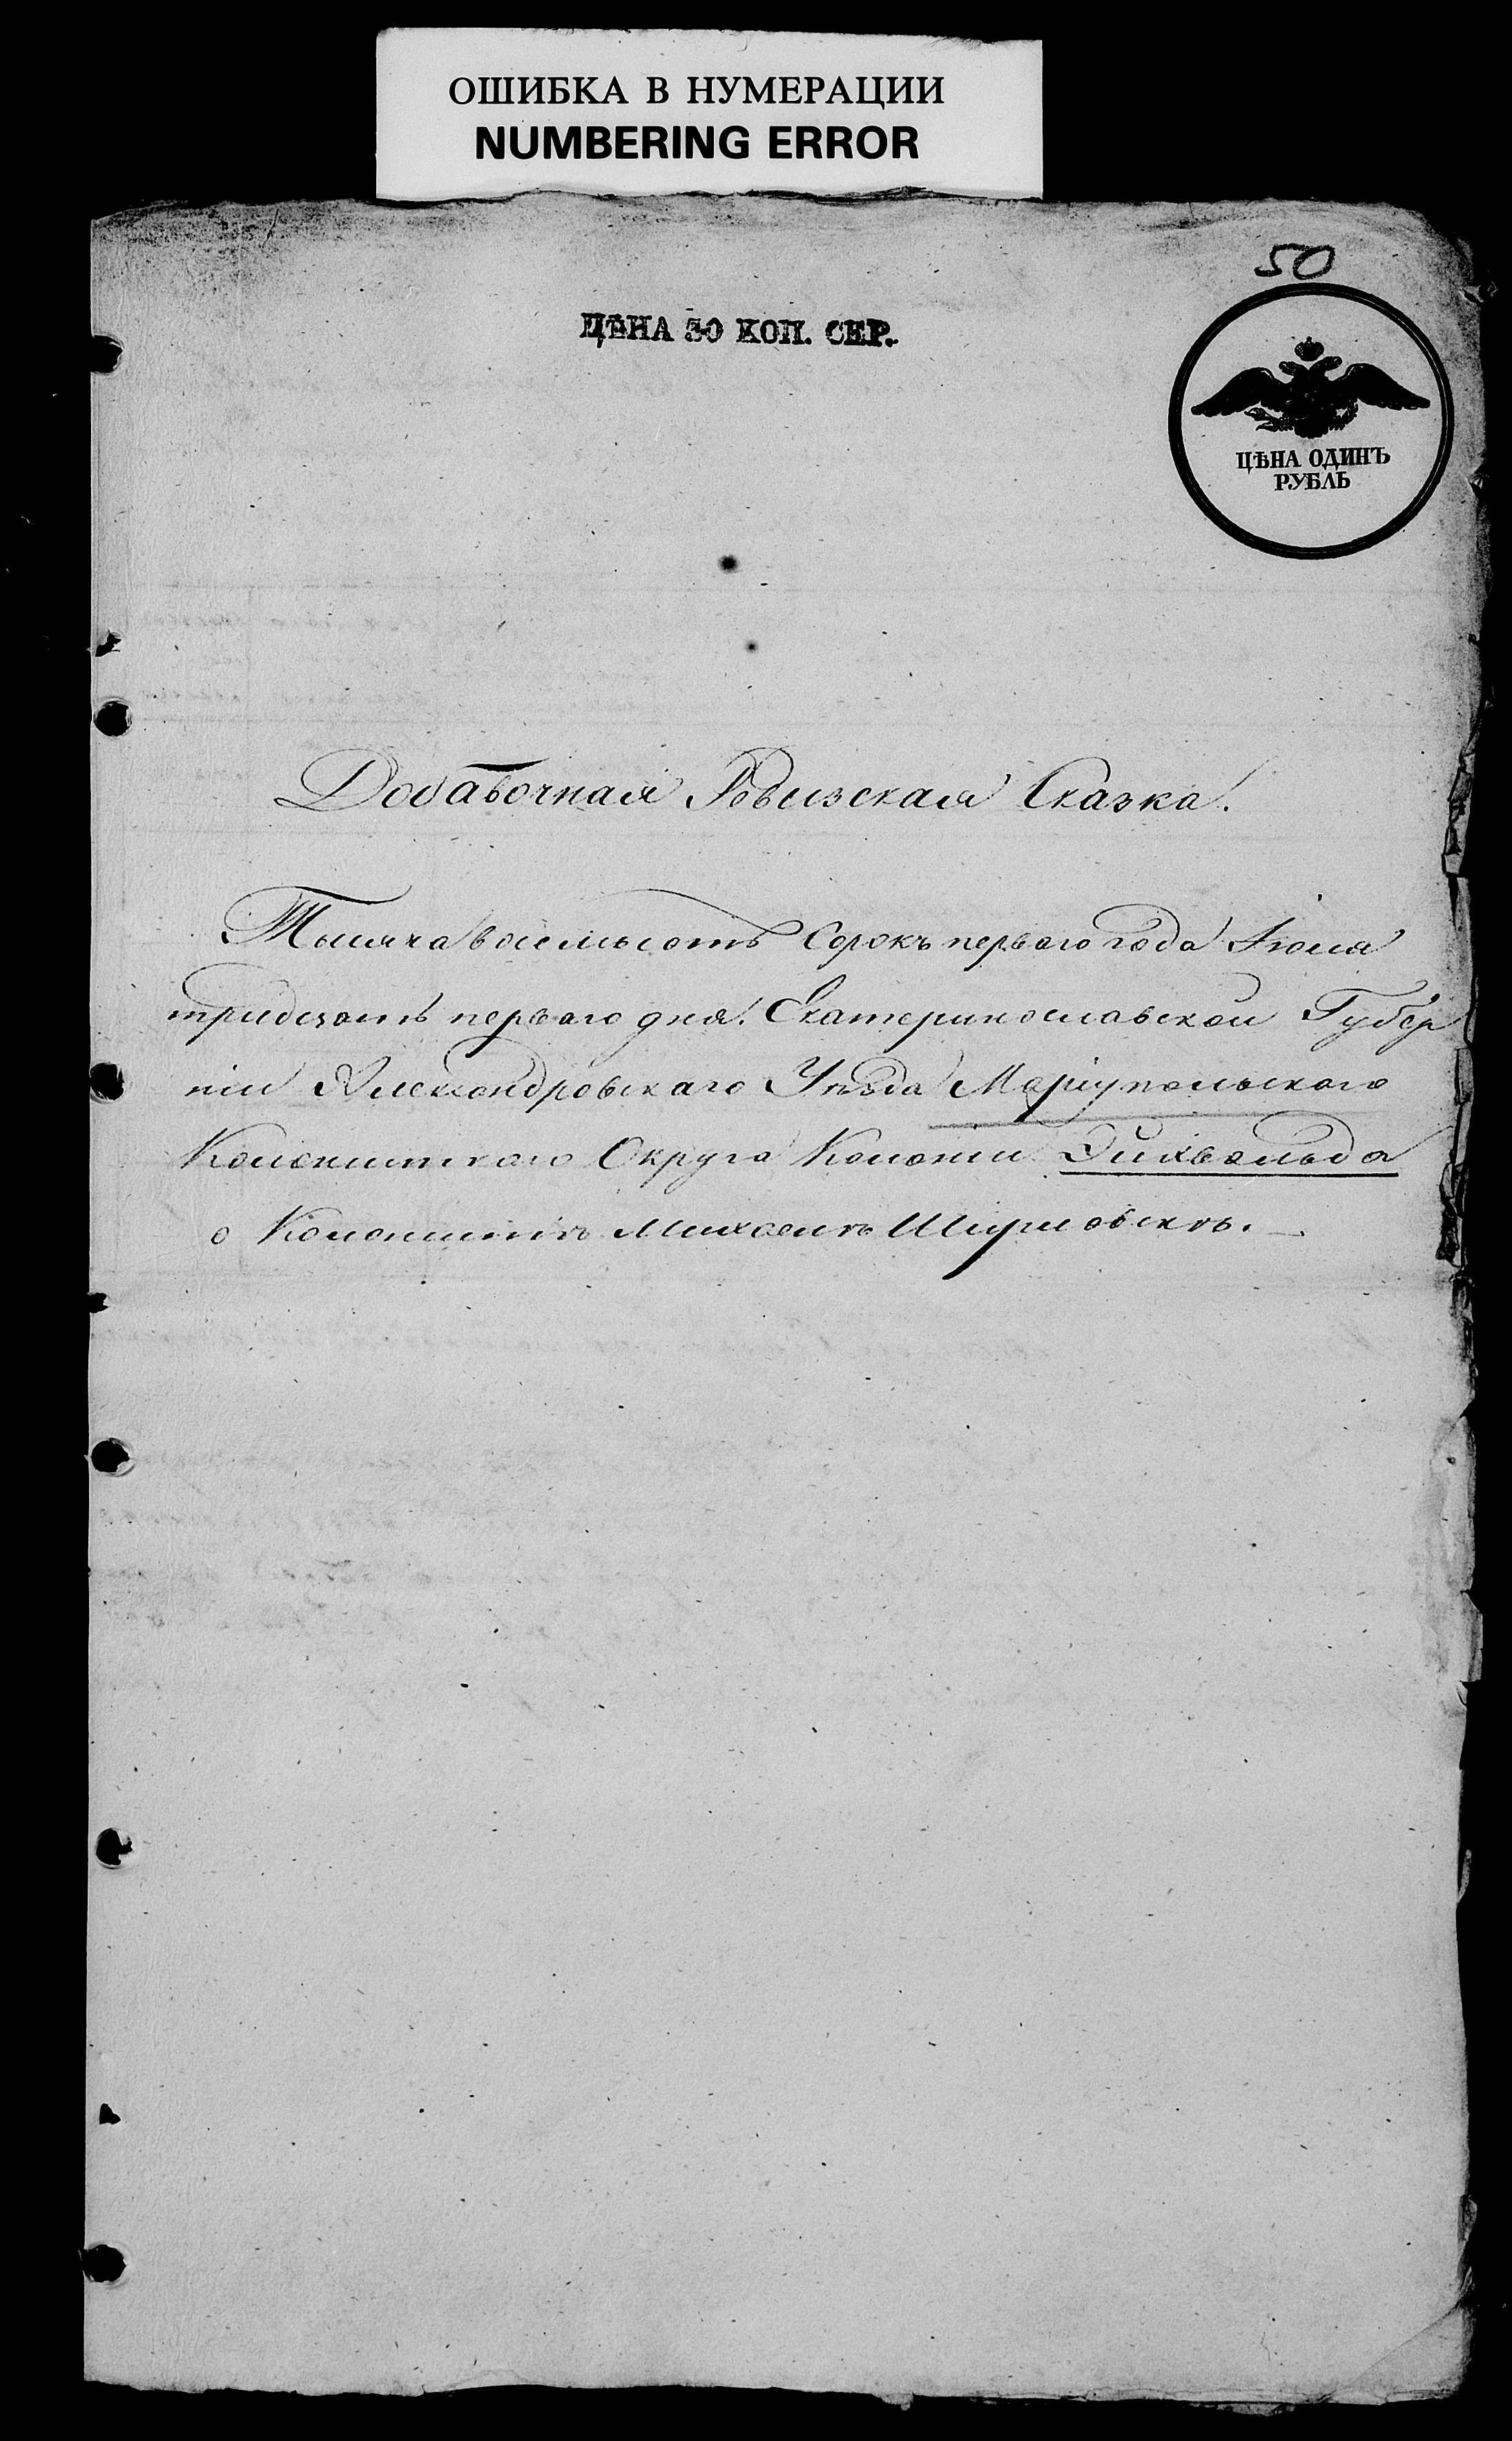 ОШИБКА В НУМЕРАЦИИ
NUMBERING ERROR
50
ЦѢНА 30 КОП. СЕР.
ЦѢНА ОДИНЪ
РУБЛЬ
Добавочная Ревизская Сказка.
Тысяча восемьсотъ Сорокъ перваго года Іюля
тридцать перваго дня. Екатеринославской Губер
ніи Александровскаго Уѣзда Маріупольскаго
Колонистскаго Округа Колоніи Эйхвальда
о Колонистѣ Михаелѣ